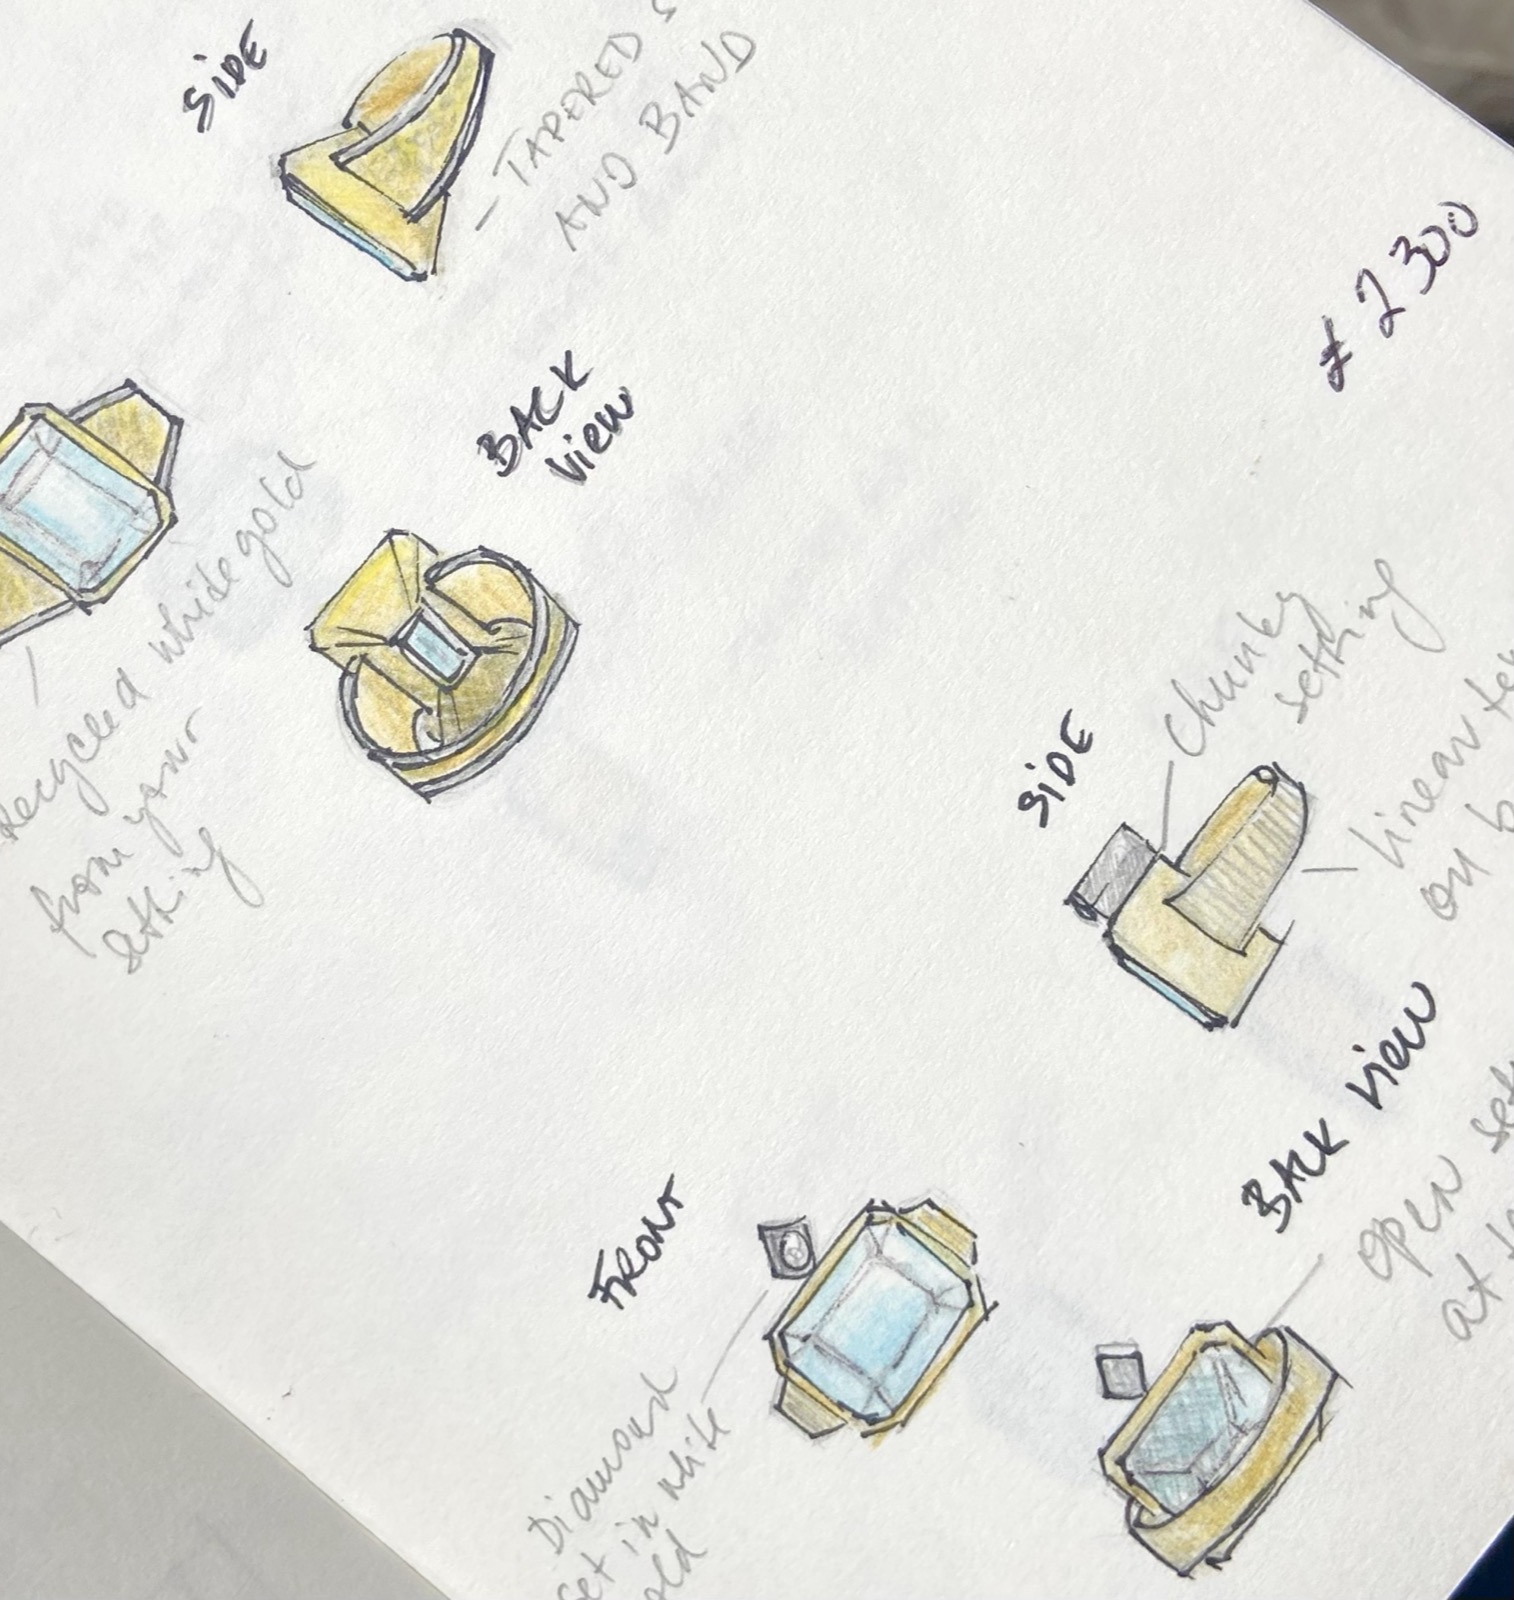 SIDE
- TAPERED
AND BAND
£2300
BACK
VIEW
Recycled white gold
from your
setting
SIDE
Chunky
setting
Linear
on
BACK VIEW
open
at
FRONT
Diamond
set in white
gold